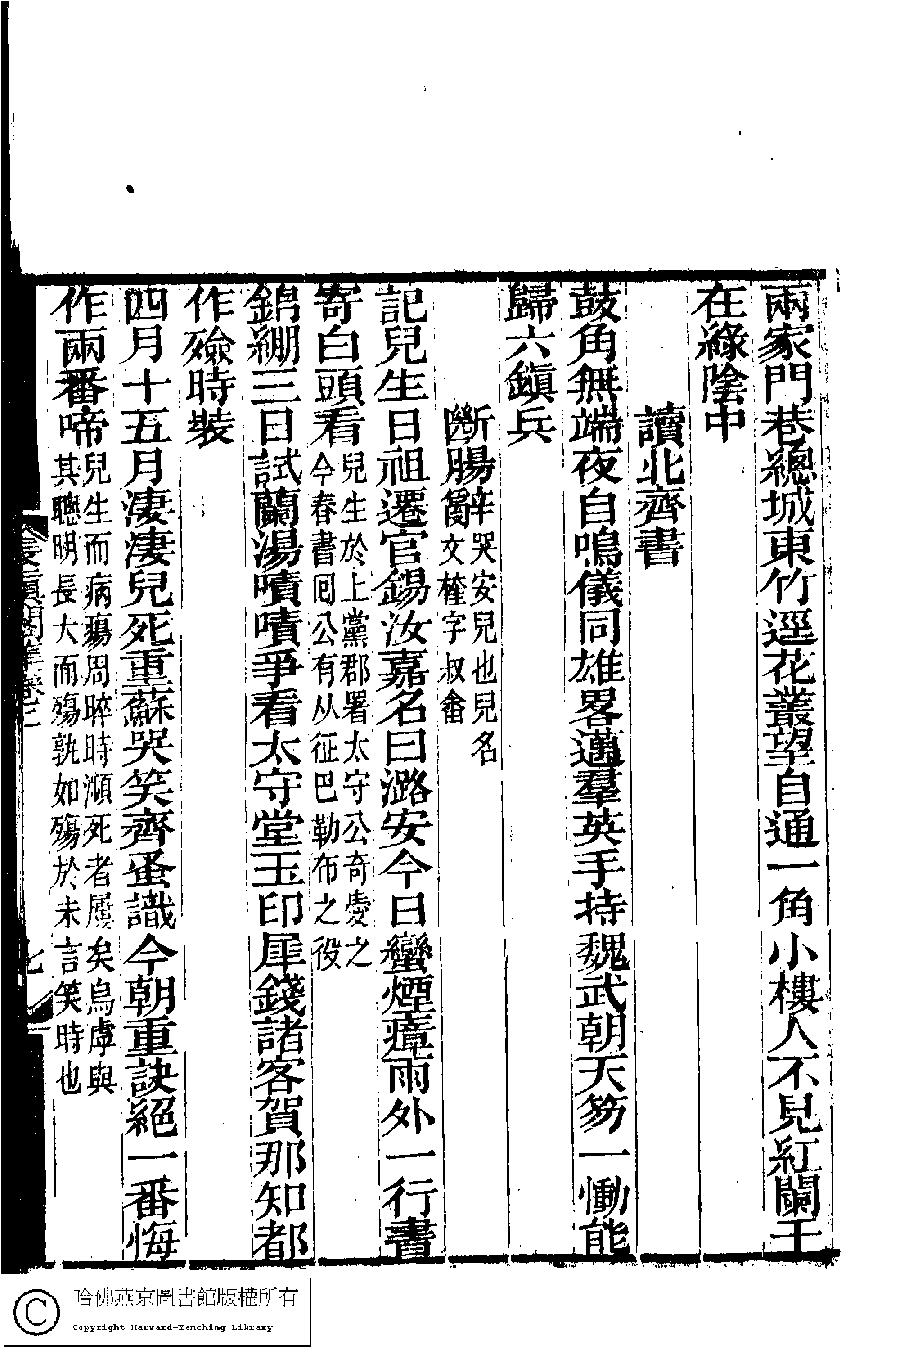 兩家門巷總城東竹逕花叢望自通一角小樓人不見紅闌干
在綠陰中
讀北齊書
鼓角無端夜自鳴儀同雄畧邁羣英手持魏武朝天笏一慟能
歸六鎮兵
斷腸辭哭安兒也兒名文榷字叔畬
記兒生日祖遷官錫汝嘉名曰潞安今日蠻煙瘴雨外一行書
寄白頭看兒生於上黨郡署太守公奇愛之今春書囘公有从征巴勒布之役
錦綳三日試蘭湯嘖嘖爭看太守堂玉印犀錢諸客賀那知都
作殮時裝
四月十五月淒淒兒死重蘇哭笑齊蚤識今朝重訣絕一番悔
作兩番啼兒生而病瘍周晬時瀕死者屢矣烏虖與其聰明長大而殤孰如殤於未言笑時也
哈佛燕京圖書館版權所有
Copyright Harvard-Yenching Library